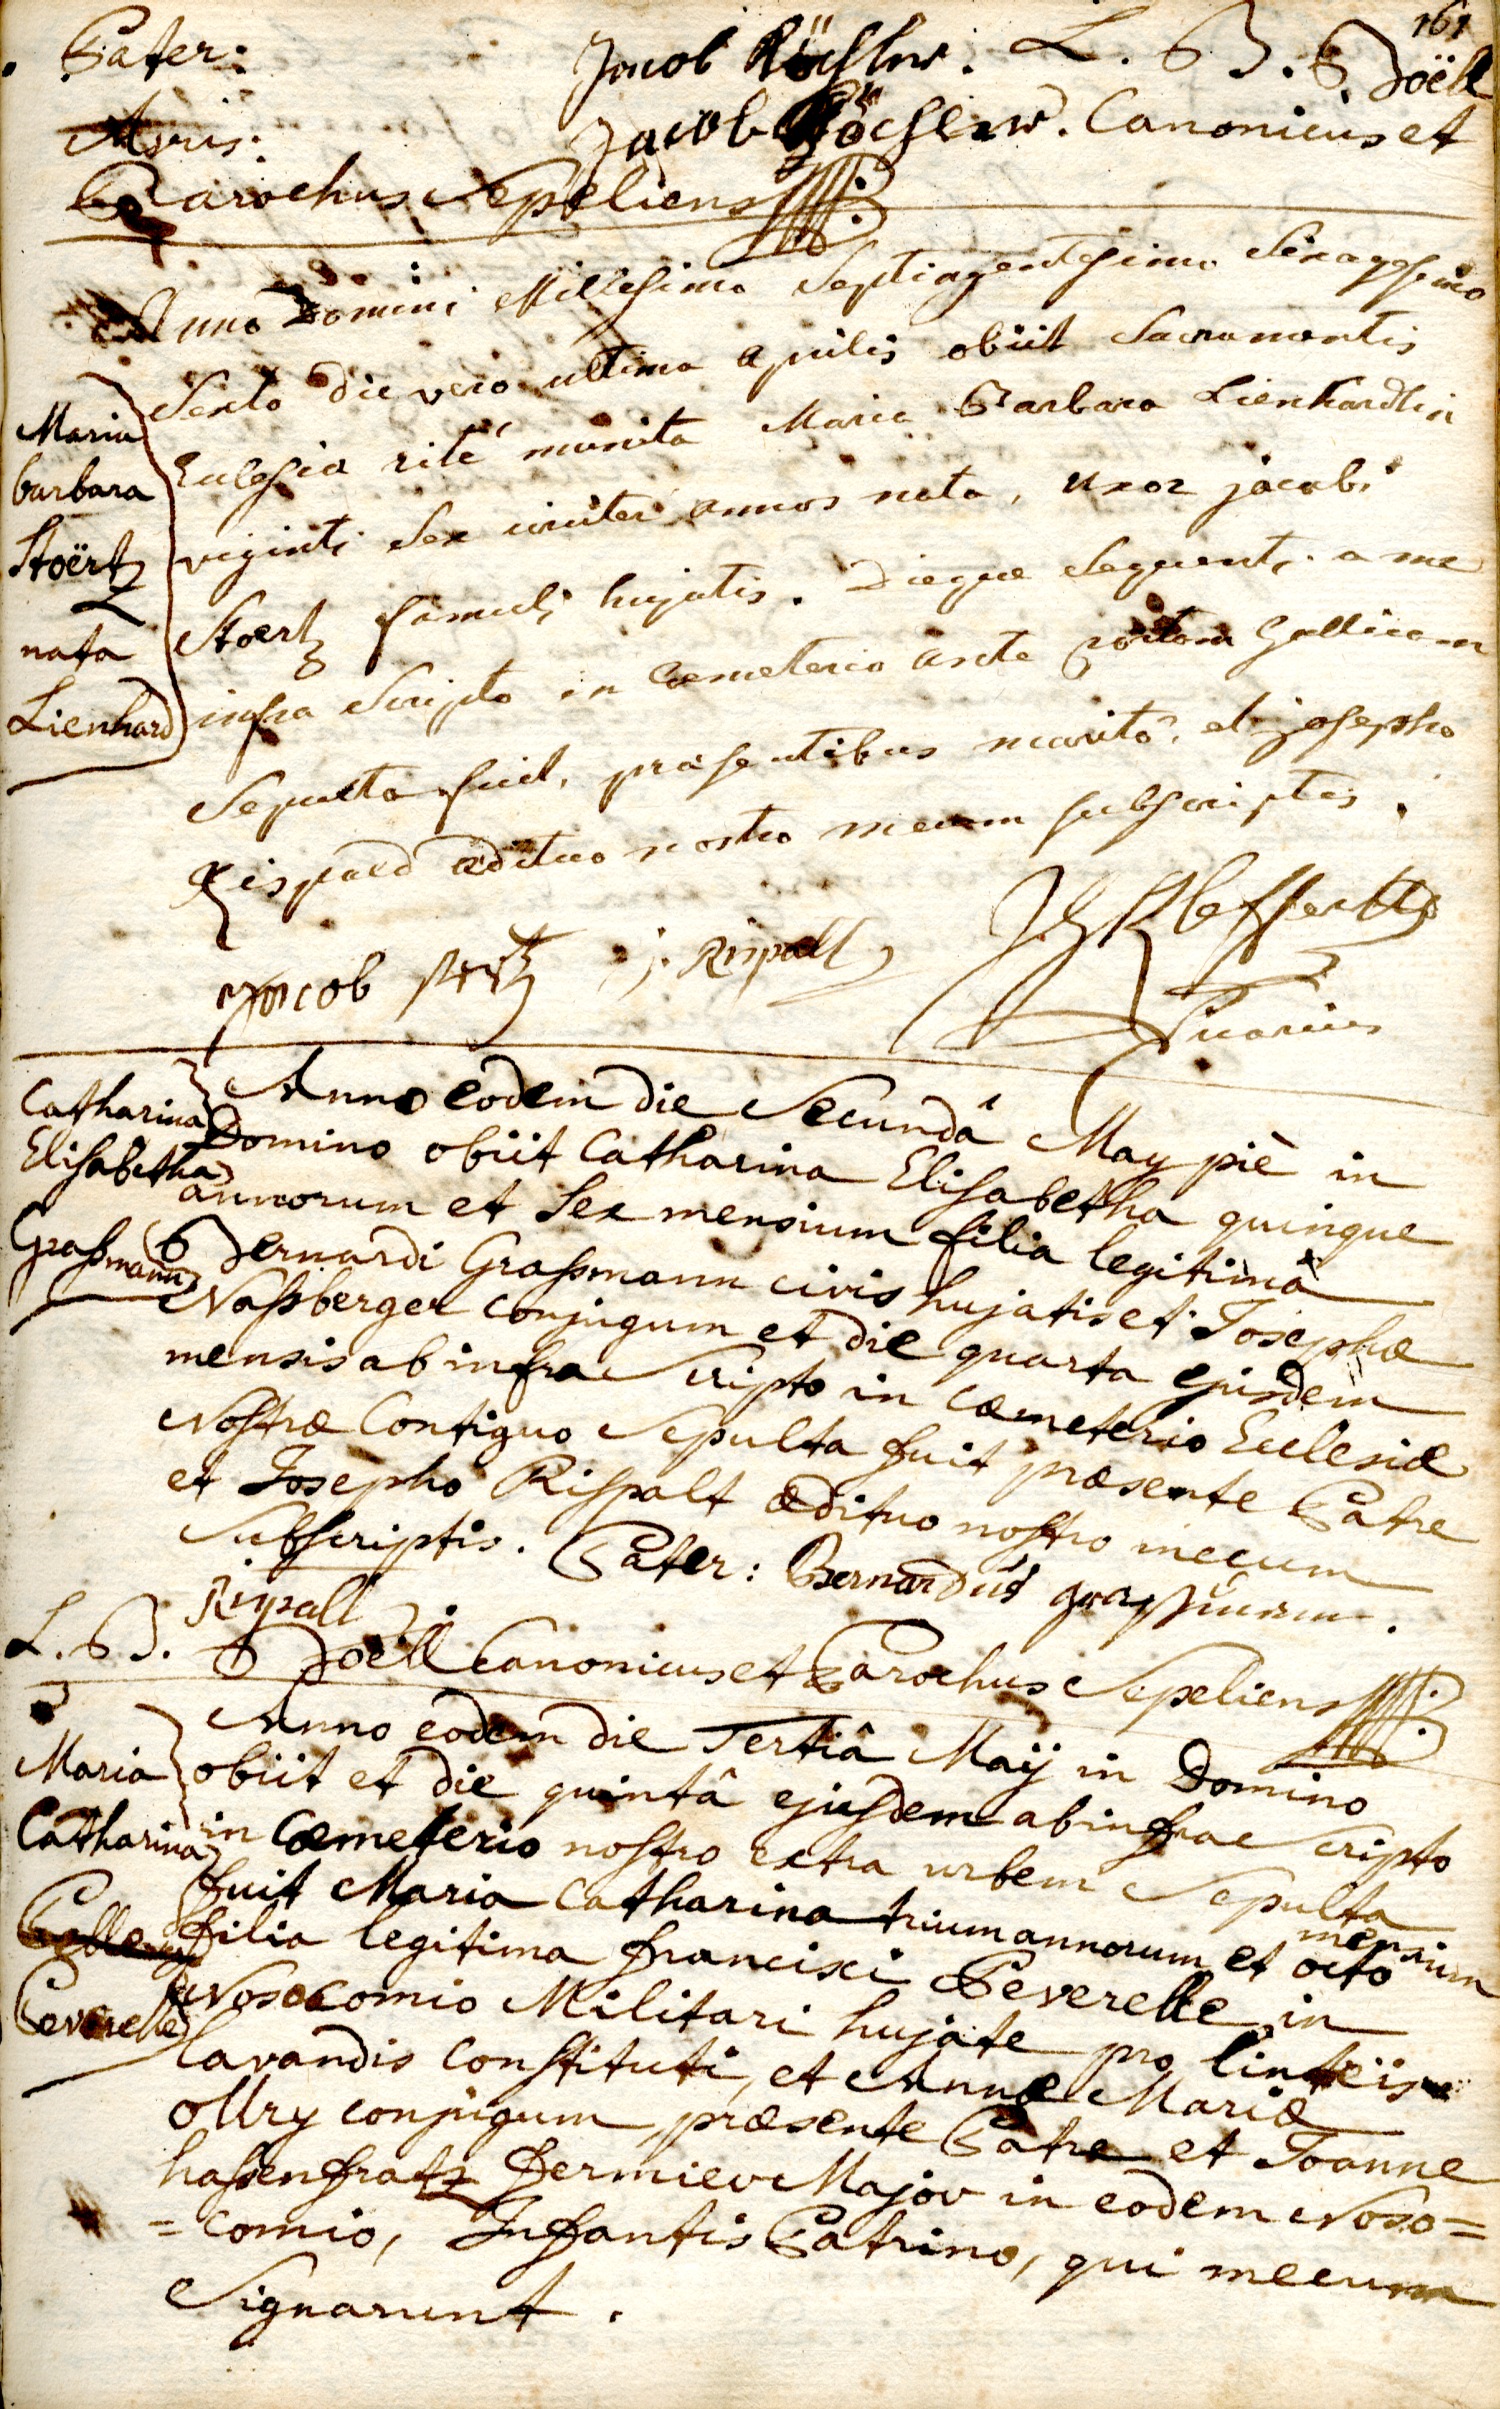 161
Pater: Jacob Röchlin. L. B. Doëll
Avus: Jacob Röchlin. Canonicus et
Parochus Sepeliens
Anno Domini Millesimo Septingentesimo Sexagesimo
Sexto die vero ultima aprilis obiit Sacramentis
Eclesia rité munita Maria Barbara Lienhardtin
viginti Sex circiter annos nata, uxor jacobi
Stoertz famuli hujatis. Dieque Sequenti a me
infra Scripto in Coemeterio ante portam Gallicam
Sepulta fuit, præsentibus maritô, et josepho
Rispald ædituo nostro mecum subscriptis.
Maria
barbara
Stoërtz
nata
Lienhard
Jacob j. Rispalt
Vicarius
Anno eodem die Secundâ May piè in
Domino obiit Catharina Elisabetha quinque
annorum et Sex mensium filia legitima
Bernardi Graßmann civis hujatis et Josephæ
Naßberger conjugum et die quarta ejusdem
mensis ab infra Scripto in Cæmeterio Ecclesiæ
Nostræ Contiguo Sepulta fuit præsente Patre
et Josepho Rispalt ædituo nostro mecum
Subscriptis. Pater: Bernardus
Catharina
Elisabetha
Graßmann
Rispalt
L. B. Doëll Canonicus et Parochus Sepeliens
Anno eodem die Tertiâ Maij in Domino
obiit et die quintâ ejusdem ab infra Scripto
in Cæmeterio nostro extra urbem Sepulta
fuit Maria Catharina trium annorum et octo mensium
filia legitima francisci Peverelle in
Nosocomio Militari hujate pro linteis
lavandis constituti, et Annæ Mariæ
ollry conjugum, præsente Patre et Joanne
haßenfratz fermier Major in eodem Noso=
=comio, Infantis Patrino, qui mecum
Signarunt.
Maria
Catharina
Peverelle